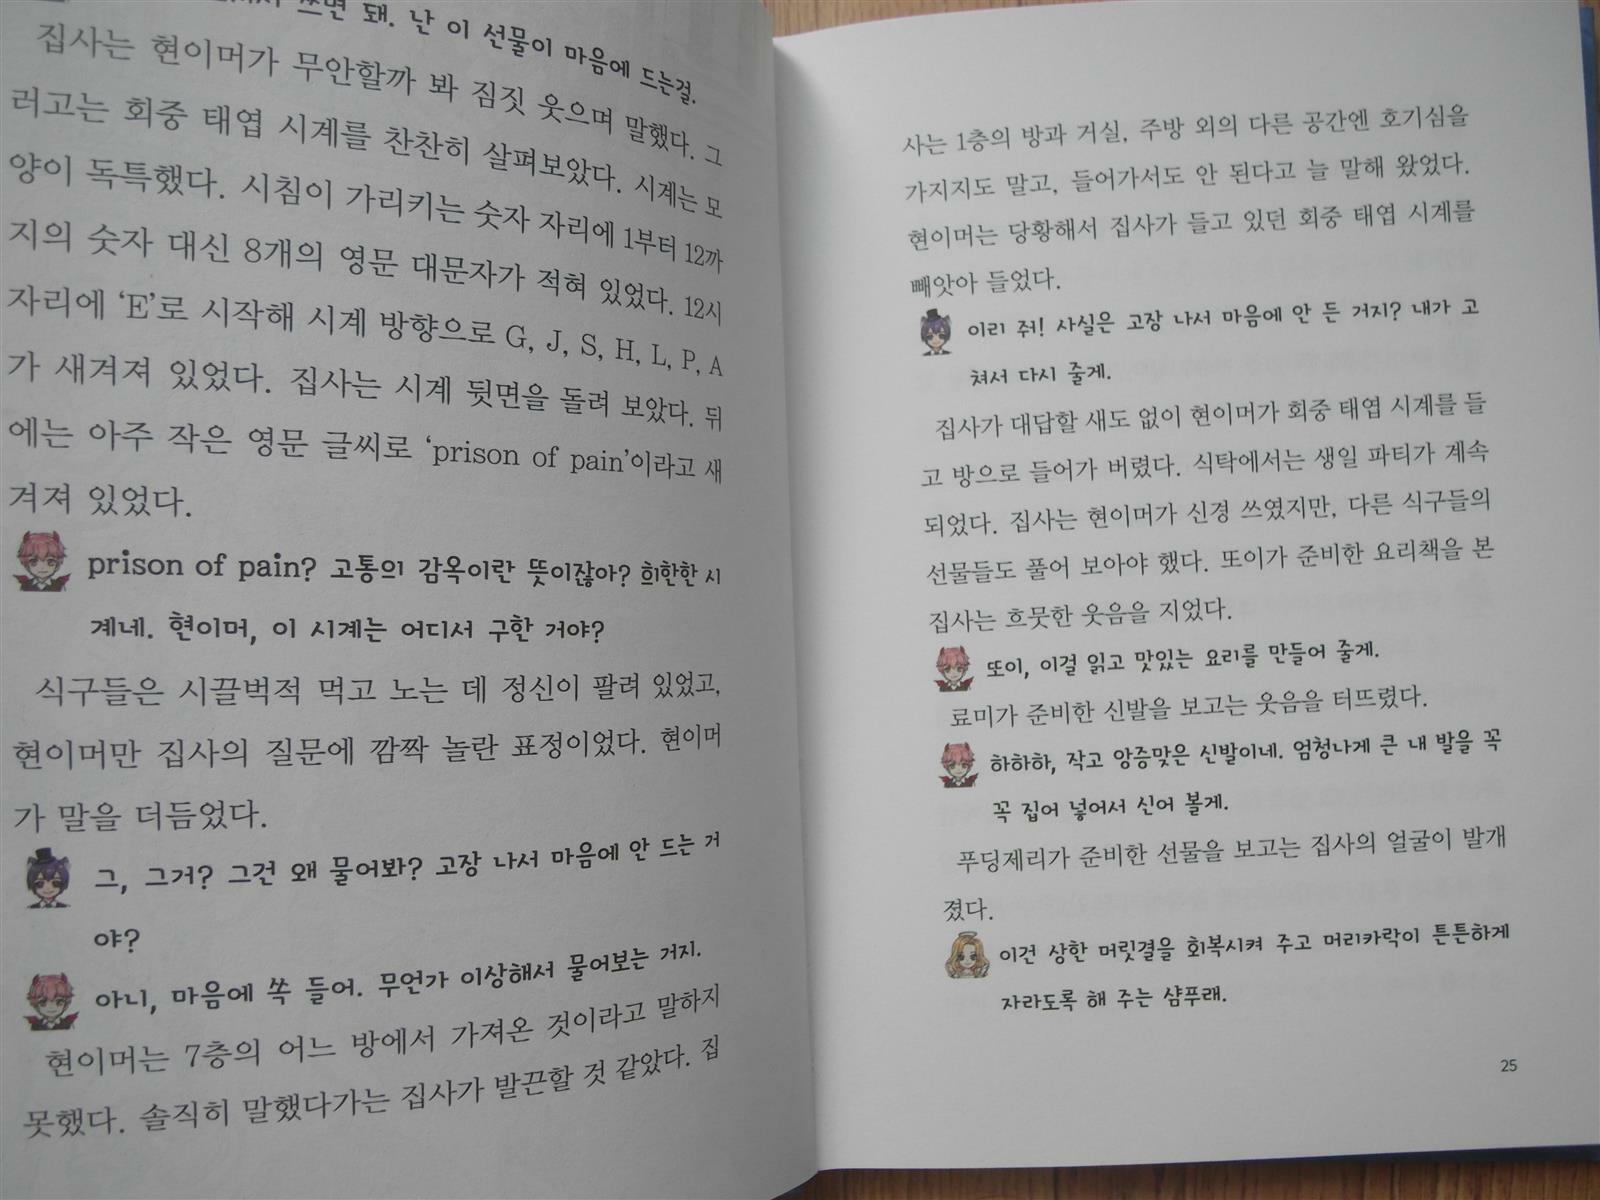 쓰면 돼. 난 이 선물이 마음에 드는걸.
집사는 현이머가 무안할까 봐 짐짓 웃으며 말했다. 그
러고는 회중 태엽 시계를 찬찬히 살펴보았다. 시계는 모
양이 독특했다. 시침이 가리키는 숫자 자리에 1부터 12까
지의 숫자 대신 8개의 영문 대문자가 적혀 있었다. 12시
자리에 ‘E’로 시작해 시계 방향으로 G, J, S, H, L, P, A
가 새겨져 있었다. 집사는 시계 뒷면을 돌려 보았다. 뒤
에는 아주 작은 영문 글씨로 ‘prison of pain’이라고 새
겨져 있었다.
prison of pain? 고통의 감옥이란 뜻이잖아? 희한한 시
계네. 현이머, 이 시계는 어디서 구한 거야?
식구들은 시끌벅적 먹고 노는 데 정신이 팔려 있었고,
현이머만 집사의 질문에 깜짝 놀란 표정이었다. 현이머
가 말을 더듬었다.
그, 그거? 그건 왜 물어봐? 고장 나서 마음에 안 드는 거
야?
아니, 마음에 쏙 들어. 무언가 이상해서 물어보는 거지.
현이머는 7층의 어느 방에서 가져온 것이라고 말하지
못했다. 솔직히 말했다가는 집사가 발끈할 것 같았다. 집
사는 1층의 방과 거실, 주방 외의 다른 공간엔 호기심을
가지지도 말고, 들어가서도 안 된다고 늘 말해 왔었다.
현이머는 당황해서 집사가 들고 있던 회중 태엽 시계를
빼앗아 들었다.
이리 줘! 사실은 고장 나서 마음에 안 든 거지? 내가 고
쳐서 다시 줄게.
집사가 대답할 새도 없이 현이머가 회중 태엽 시계를 들
고 방으로 들어가 버렸다. 식탁에서는 생일 파티가 계속
되었다. 집사는 현이머가 신경 쓰였지만, 다른 식구들의
선물들도 풀어 보아야 했다. 또이가 준비한 요리책을 본
집사는 흐뭇한 웃음을 지었다.
또이, 이걸 읽고 맛있는 요리를 만들어 줄게.
료미가 준비한 신발을 보고는 웃음을 터뜨렸다.
하하하, 작고 앙증맞은 신발이네. 엄청나게 큰 내 발을 꼭
꼭 집어 넣어서 신어 볼게.
푸딩제리가 준비한 선물을 보고는 집사의 얼굴이 발개
졌다.
이건 상한 머릿결을 회복시켜 주고 머리카락이 튼튼하게
자라도록 해 주는 샴푸래.
25